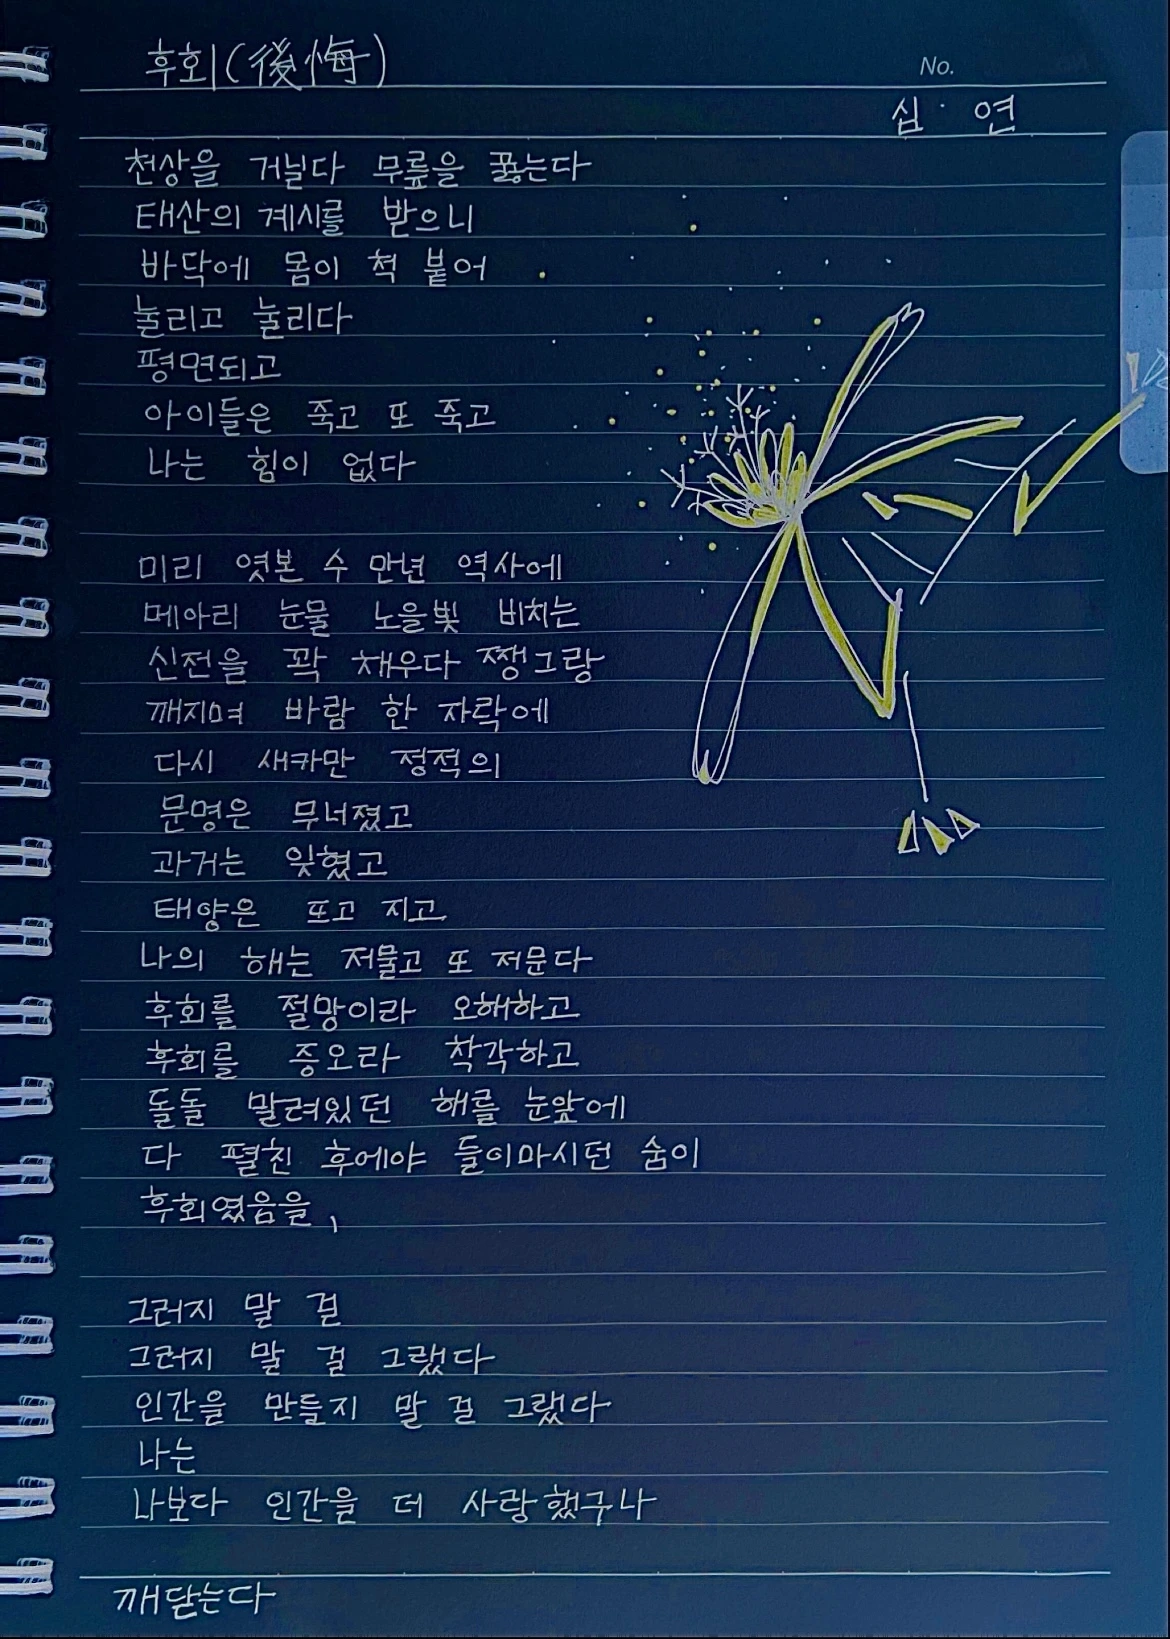 후회(後悔)
No.
십· 연
천상을 거닐다 무릎을 꿇는다
태산의 계시를 받으니
바닥에 몸이 척 붙어
눌리고 눌리다
평면되고
아이들은 죽고 또 죽고
나는 힘이 없다
미리 엿본 수 만년 역사에
메아리 눈물 노을빛 비치는
신전을 꽉 채우다 쨍그랑
깨지며 바람 한 자락에
다시 새카만 정적의
문명은 무너졌고
과거는 잊혔고
태양은 뜨고 지고
나의 해는 저물고 또 저문다
후회를 절망이라 오해하고
후회를 증오라 착각하고
돌돌 말려있던 해를 눈앞에
다 펼친 후에야 들이마시던 숨이
후회였음을,
그러지 말 걸
그러지 말 걸 그랬다
인간을 만들지 말 걸 그랬다
나는
나보다 인간을 더 사랑했구나
깨닫는다